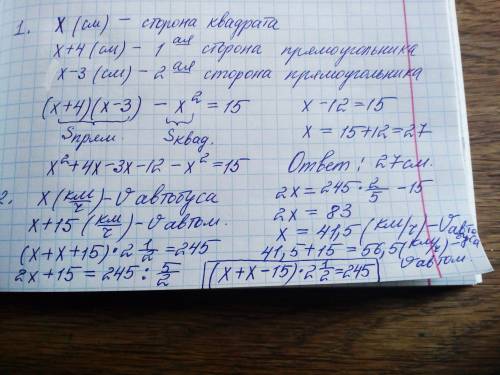 1. х (см) – сторона квадрата
х+4 (см) – 1 ая сторона прямоугольника
х-3 (см) – 2 ая сторона прямоугольника
(х+4)(х-3) – х² = 15
Sпрям. Sквад.
х²+4х-3х-12-х²=15
х-12=15
х=15+12=27
Ответ: 27см.
2. х (км/ч) – V автобуса
х+15 (км/ч) – V автом.
(х+х+15)·2 1/2 = 245
2х+15 = 245 : 5/2
2х=245·2/5 -15
2х = 83
х = 41,5 (км/ч) – V автобуса
41,5+15 = 56,5 (км/ч) – V автом.
(х+х-15)·2 1/2 = 245